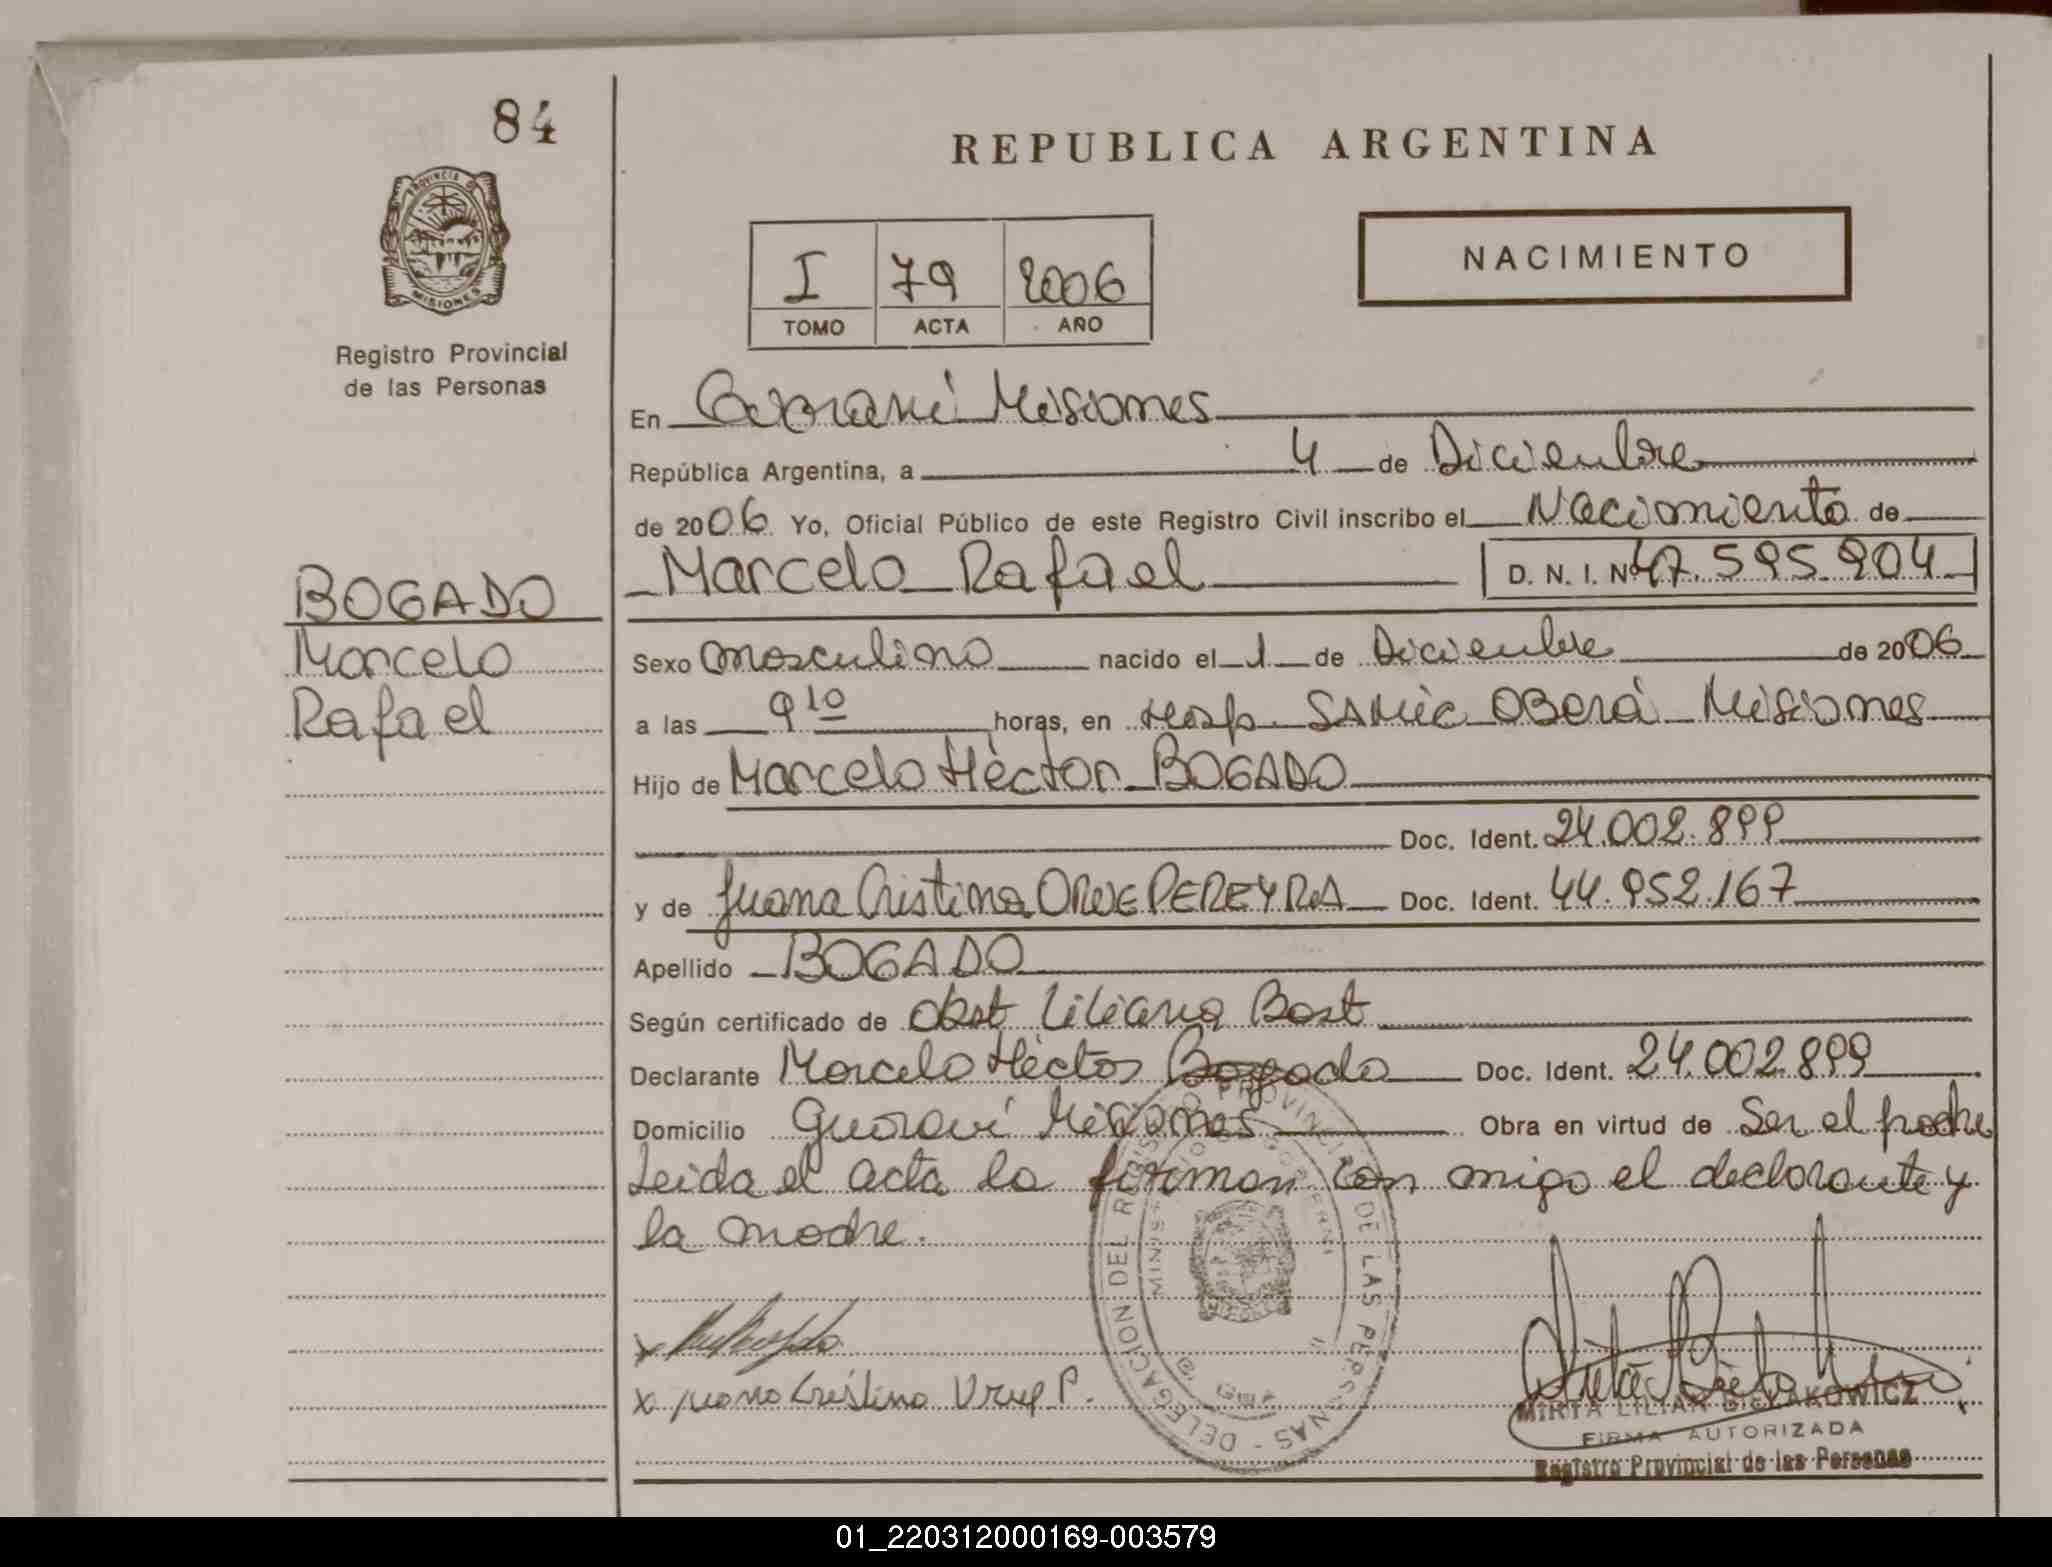 84
REPUBLICA ARGENTINA
NACIMIENTO
I 79 2006
TOMO ACTA AÑO
PROVINCIA DE
MISIONES
Registro Provincial
de las Personas
En Guaraní Misiones
República Argentina, a 4 de Diciembre
de 2006 Yo, Oficial Público de este Registro Civil inscribo el Nacimiento de
Marcelo Rafael D. N. I. Nº 47.595.904
BOGADO
Marcelo
Rafael
Sexo masculino nacido el 1 de Diciembre de 2006
a las 9 10 horas, en Hosp. SAMic OBerá Misiones
Hijo de Marcelo Hèctor BOGADO
Doc. Ident. 24.002.899
y de Juana Cristina ORUE PEREYRA Doc. Ident. 44.952.167
Apellido BOGADO
Según certificado de Obst Liliana Bast
Declarante Marcelo Hèctor Bogado Doc. Ident. 24.002.899
Domicilio Guaraní Misiones Obra en virtud de Ser el padre
Leida el acta la firman con migo el declarante y
la madre.
x Juana Cristina Urue P.
DELEGACION DEL REGISTRO PROVINCIAL DE LAS PERSONAS
MIRTA LILIAN BIELAKOWICZ
FIRMA AUTORIZADA
Registro Provincial de las Personas
01_220312000169-003579